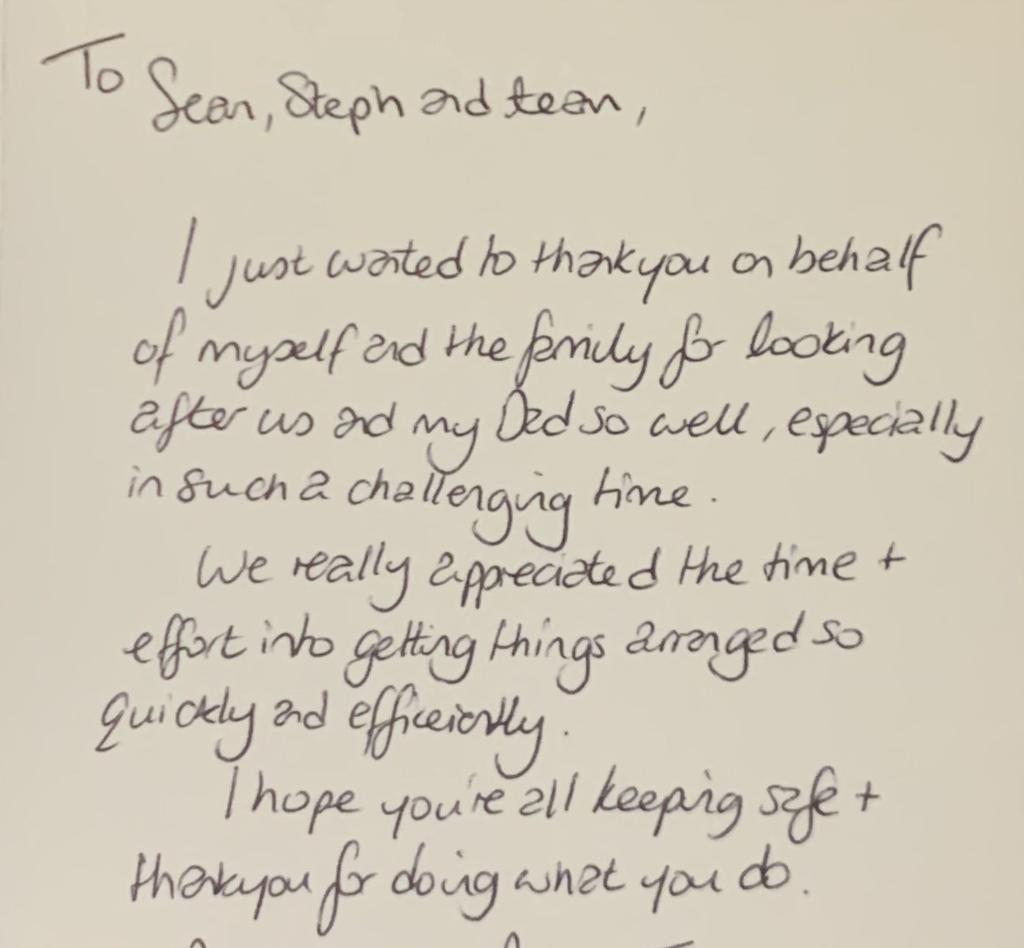 To Sean, Steph and team,
I just wanted to thankyou on behalf
of myself and the family for looking
after us and my Dad so well, especially
in such a challenging time.
We really appreciated the time +
effort into getting things arranged so
quickly and efficiently.
I hope you're all keeping safe +
thankyou for doing what you do.